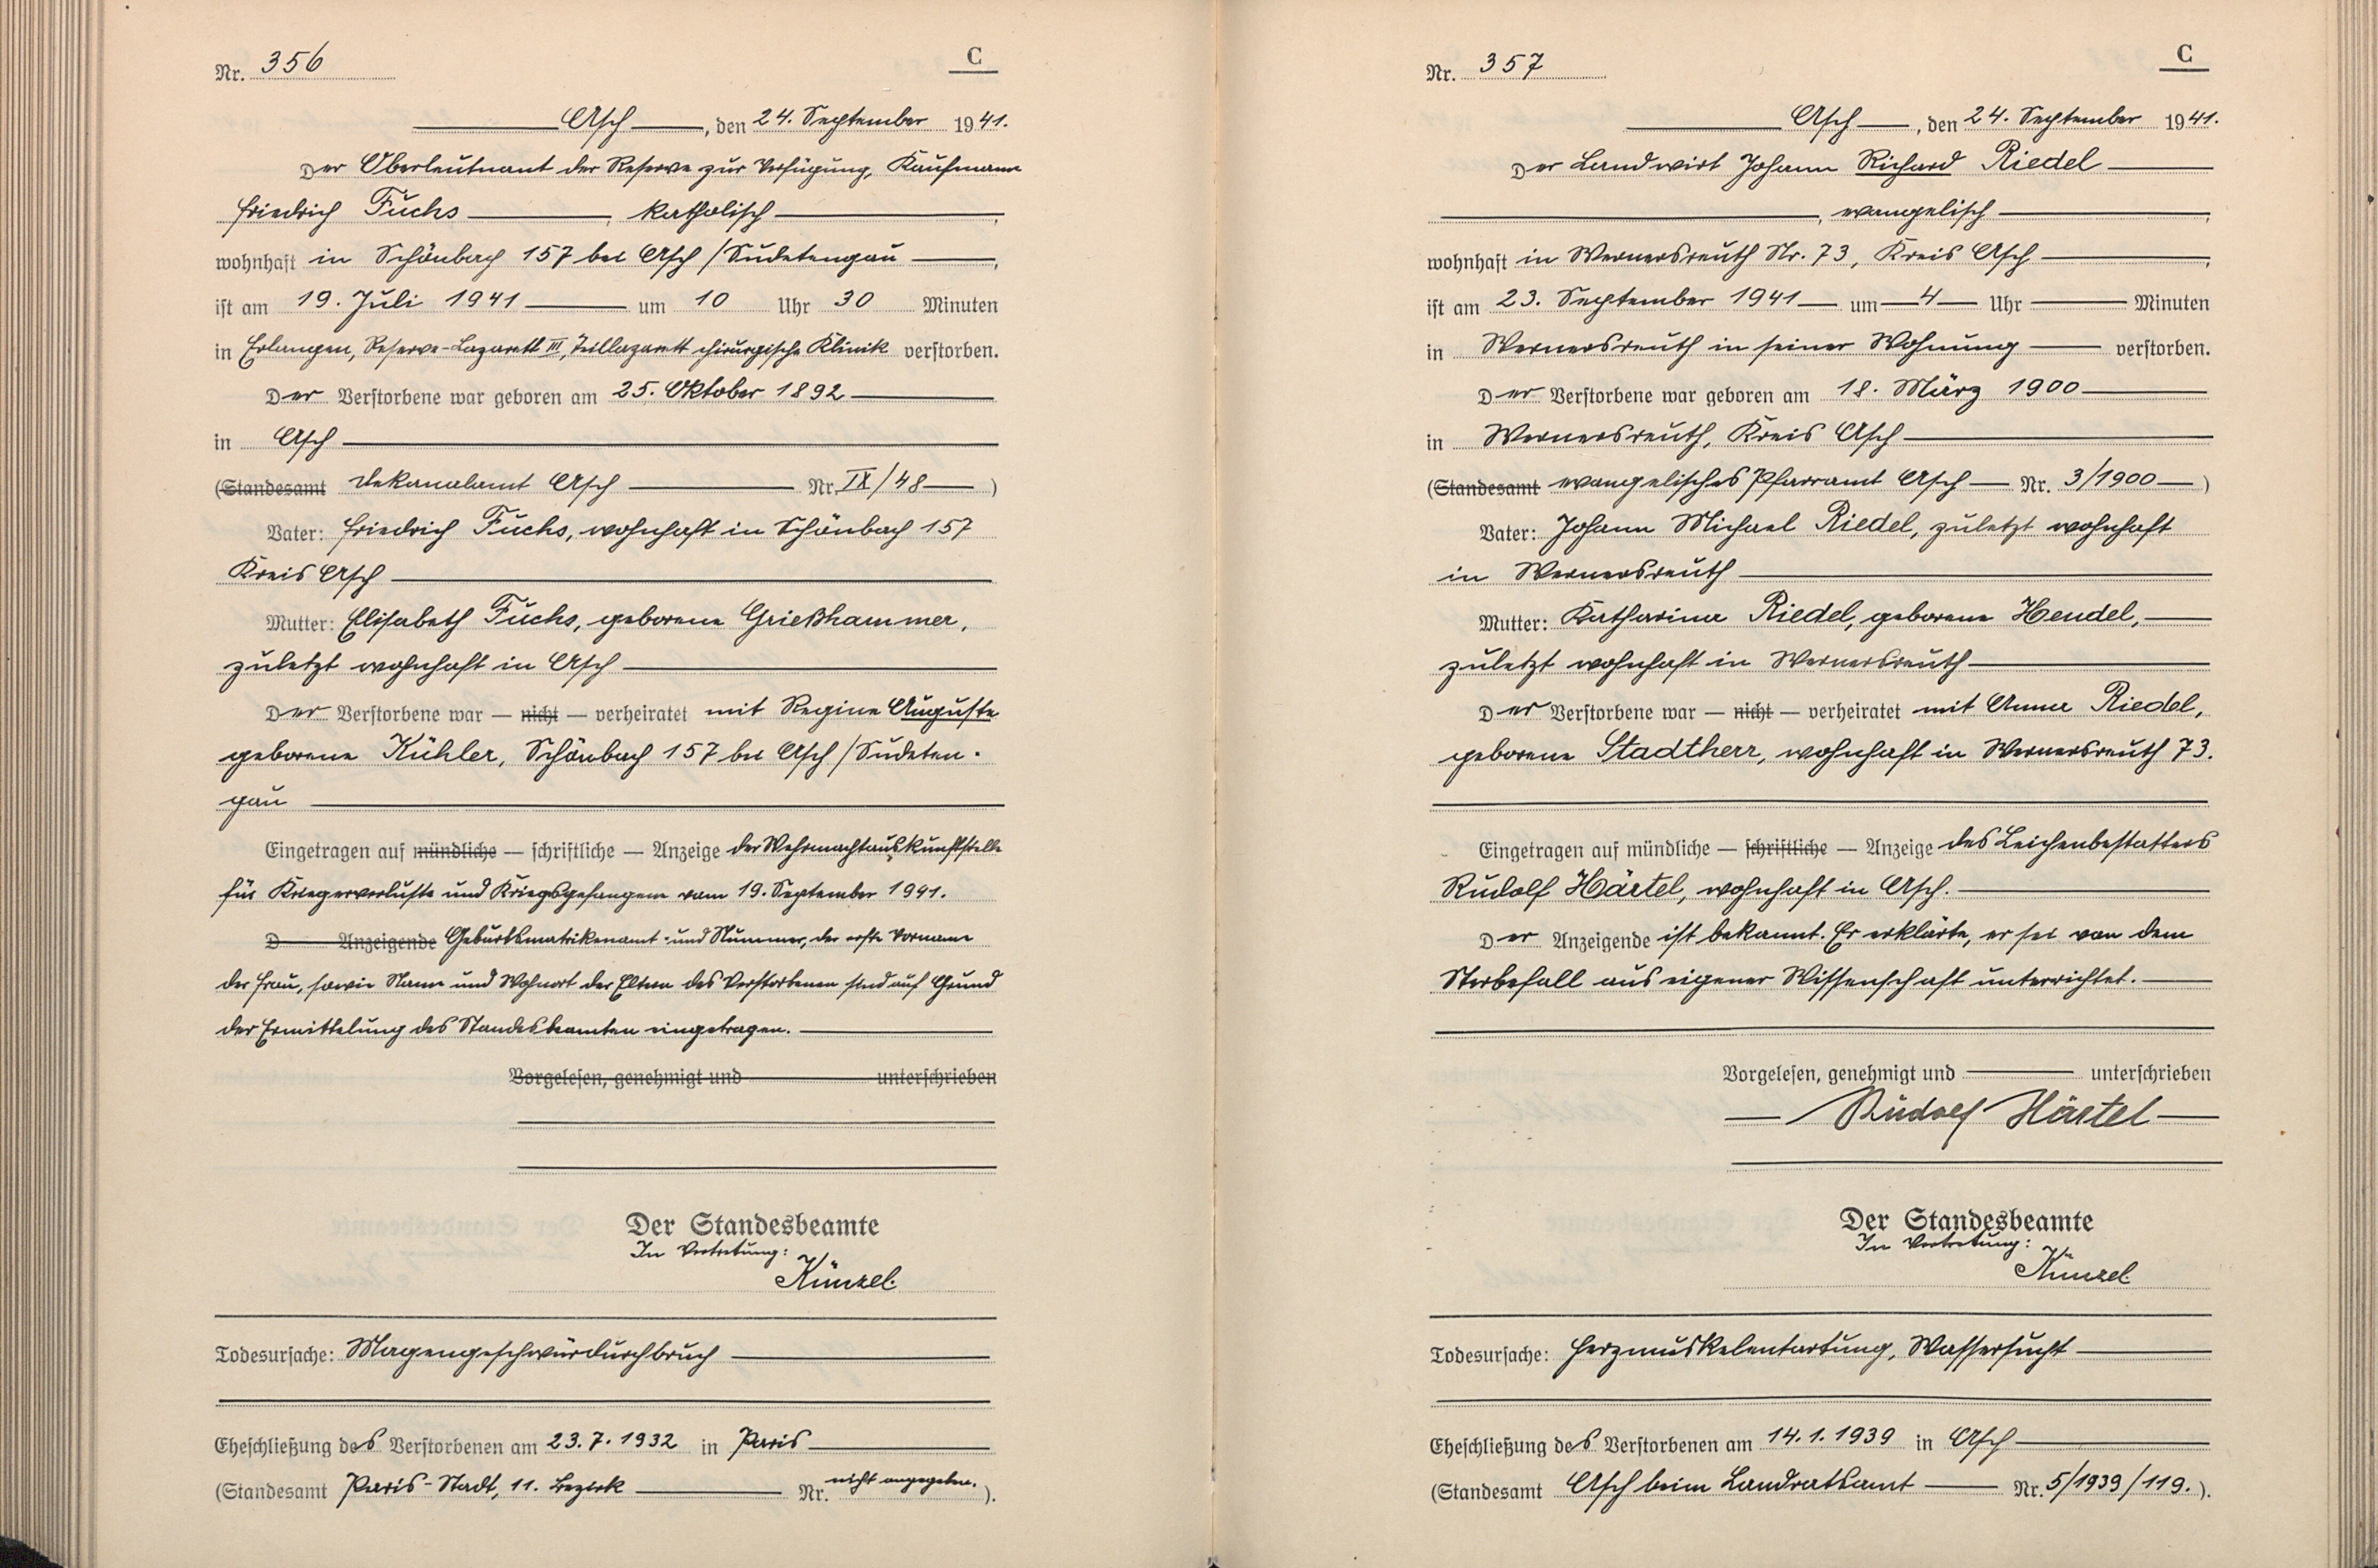 Nr. 356
C
Asch, den 24. September 1941.
Der Oberleutnant der Reserve zur Verfügung, Kaufmann
Friedrich Fuchs, katholisch,
wohnhaft in Schönbach 157 bei Asch/Sudetengau,
ist am 19. Juli 1941 um 10 Uhr 30 Minuten
in Erlangen, Reserve-Lazarett III, Teillazarett chirurgische Klinik verstorben.
Der Verstorbene war geboren am 25. Oktober 1892
in Asch
(Standesamt Dekanalamt Asch Nr. IX/48)
Vater: Friedrich Fuchs, wohnhaft in Schönbach 157
Kreis Asch
Mutter: Elisabeth Fuchs, geborene Grießhammer,
zuletzt wohnhaft in Asch
Der Verstorbene war — nicht — verheiratet mit Regine Auguste
geborene Kühler, Schönbach 157 bei Asch/Sudeten-
gau
Eingetragen auf mündliche — schriftliche — Anzeige der Wehrmachtauskunftstelle
für Kriegerverluste und Kriegsgefangene vom 19. September 1941.
D Anzeigende Geburtsmatrikenamt- und Nummer, der erste Vorname
der Frau, sowie Name und Wohnort der Eltern des Verstorbenen sind auf Grund
der Ermittelung des Standesbeamten eingetragen.
Vorgelesen, genehmigt und unterschrieben
Der Standesbeamte
In Vertretung:
Künzel.
Todesursache: Magengeschwürdurchbruch
Eheschließung des Verstorbenen am 23.7.1932 in Paris
(Standesamt Paris-Stadt, 11. Bezirk Nr. nicht angegeben.).
Nr. 357
C
Asch, den 24. September 1941.
Der Landwirt Johann Richard Riedel
, evangelisch,
wohnhaft in Wernersreuth Nr. 73, Kreis Asch,
ist am 23. September 1941 um 4 Uhr Minuten
in Wernersreuth in seiner Wohnung verstorben.
Der Verstorbene war geboren am 18. März 1900
in Wernersreuth, Kreis Asch
(Standesamt evangelisches Pfarramt Asch Nr. 3/1900)
Vater: Johann Michael Riedel, zuletzt wohnhaft
in Wernersreuth
Mutter: Katharina Riedel, geborene Hendel,
zuletzt wohnhaft in Wernersreuth
Der Verstorbene war — nicht — verheiratet mit Anna Riedel,
geborene Stadtherr, wohnhaft in Wernersreuth 73.
Eingetragen auf mündliche — schriftliche — Anzeige des Leichenbestatters
Rudolf Härtel, wohnhaft in Asch.
Der Anzeigende ist bekannt. Er erklärte, er sei von dem
Sterbefall aus eigener Wissenschaft unterrichtet.
Vorgelesen, genehmigt und unterschrieben
Rudolf Härtel
Der Standesbeamte
In Vertretung:
Künzel.
Todesursache: Herzmuskelentartung, Wassersucht
Eheschließung des Verstorbenen am 14.1.1939 in Asch
(Standesamt Asch beim Landratsamt Nr. 5/1939/119.).